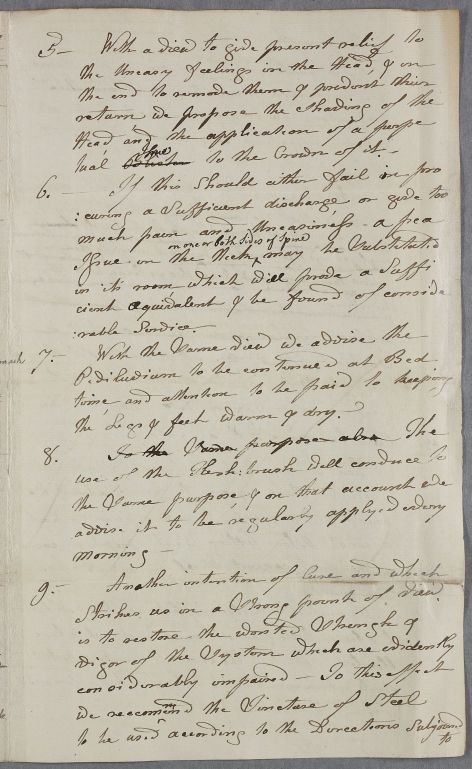 5 - With a view to give present relief to
the Uneasy feelings in the Head, & in
the end to remove them & prevent their
return we propose the Shading of the
Head and the application of a perpe
tual Issue to the Crown of it -
6. - If this Should either fail in pro
:curing a Sufficient discharge or give too
much pain and Uneasiness a pea
on one or both Sides of Spine
Issue on the Neck may be Substituted
in its room which will prove a Suffi
cient equivalent & be found of conside
:rable Service -
7. - With the Same view we advise the
Pediluvium to be continued at Bed
time and attention to be paid to keeping
the Legs & feet warm & dry.
8. To the Same purpose also The
use of the Flesh:brush will conduce to
the Same purpose & on that account we
advise it to be regularly applyed every
morning -
9. - Another intention of Cure and which
Strikes us in a Strong point of view
is to restore the wonted Strength &
vigor of the System which are evidently
considerably impaired - To this effect
we recommend the Tincture of Steel
to be used according to the Directions Subjoined
to